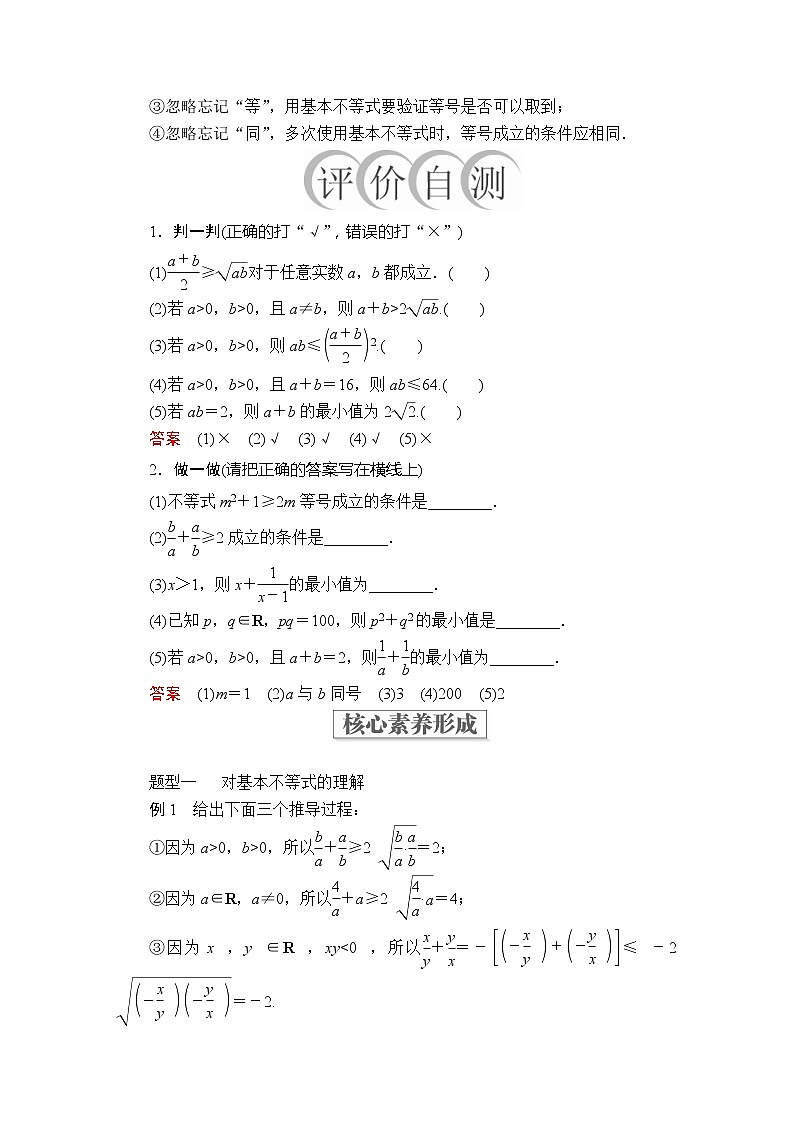 ③忽略忘记“等”，用基本不等式要验证等号是否可以取到；
④忽略忘记“同”，多次使用基本不等式时，等号成立的条件应相同．
评价自测
1．判一判(正确的打“√”，错误的打“×”)
(1)\frac{a＋b}{2}≥\sqrt{ab}对于任意实数 a，b 都成立．(　　)
(2)若 a>0，b>0，且 a≠b，则 a＋b>2\sqrt{ab}.(　　)
(3)若 a>0，b>0，则 ab≤(\frac{a＋b}{2})².(　　)
(4)若 a>0，b>0，且 a＋b＝16，则 ab≤64.(　　)
(5)若 ab＝2，则 a＋b 的最小值为 2\sqrt{2}.(　　)
答案　(1)×　(2)√　(3)√　(4)√　(5)×
2．做一做(请把正确的答案写在横线上)
(1)不等式 m²＋1≥2m 等号成立的条件是________．
(2)\frac{b}{a}＋\frac{a}{b}≥2 成立的条件是________．
(3)x＞1，则 x＋\frac{1}{x－1}的最小值为________．
(4)已知 p，q∈R，pq＝100，则 p²＋q² 的最小值是________．
(5)若 a>0，b>0，且 a＋b＝2，则\frac{1}{a}＋\frac{1}{b}的最小值为________．
答案　(1)m＝1　(2)a 与 b 同号　(3)3　(4)200　(5)2
核心素养形成
题型一　对基本不等式的理解
例 1　给出下面三个推导过程：
①因为 a>0，b>0，所以\frac{b}{a}＋\frac{a}{b}≥2 \sqrt{\frac{b}{a}·\frac{a}{b}}＝2；
②因为 a∈R，a≠0，所以\frac{4}{a}＋a≥2 \sqrt{\frac{4}{a}·a}＝4；
③因为 x ，y ∈R ，xy<0 ，所以\frac{x}{y}＋\frac{y}{x}＝－[(－\frac{x}{y})＋(－\frac{y}{x})]≤ －2
\sqrt{(－\frac{x}{y})(－\frac{y}{x})}＝－2.